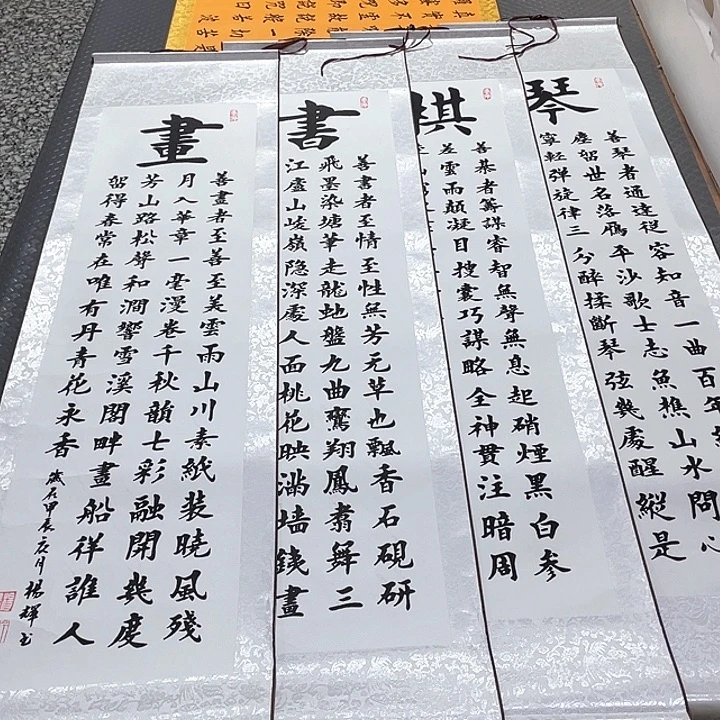 琴
善琴者通達從容知音一曲百年
塵留世名落雁平沙歌士志魚樵山水問心
寧輕彈旋律三分醉揉斷琴弦幾處醒縱是
棋
善棊者籌謀睿智無聲無息起硝煙黑白參
差雲雨顛凝目搜囊巧謀略全神貫注暗周
書
善書者至情至性無芳元草也飄香石硯研
飛墨染塘華走龍虵盤九曲鸞翔鳳翥舞三
江廬山峻嶺隐深處人面桃花映滿墙錢畫
畫
善畫者至善至美雲雨山川素紙裝曉風殘
月入華章一毫漫卷千秋韻七彩融開幾度
芳山路松聲和澗響雪溪閣畔畫船祥誰人
留得春常在唯有丹青花永香
歲在甲辰月楊輝書